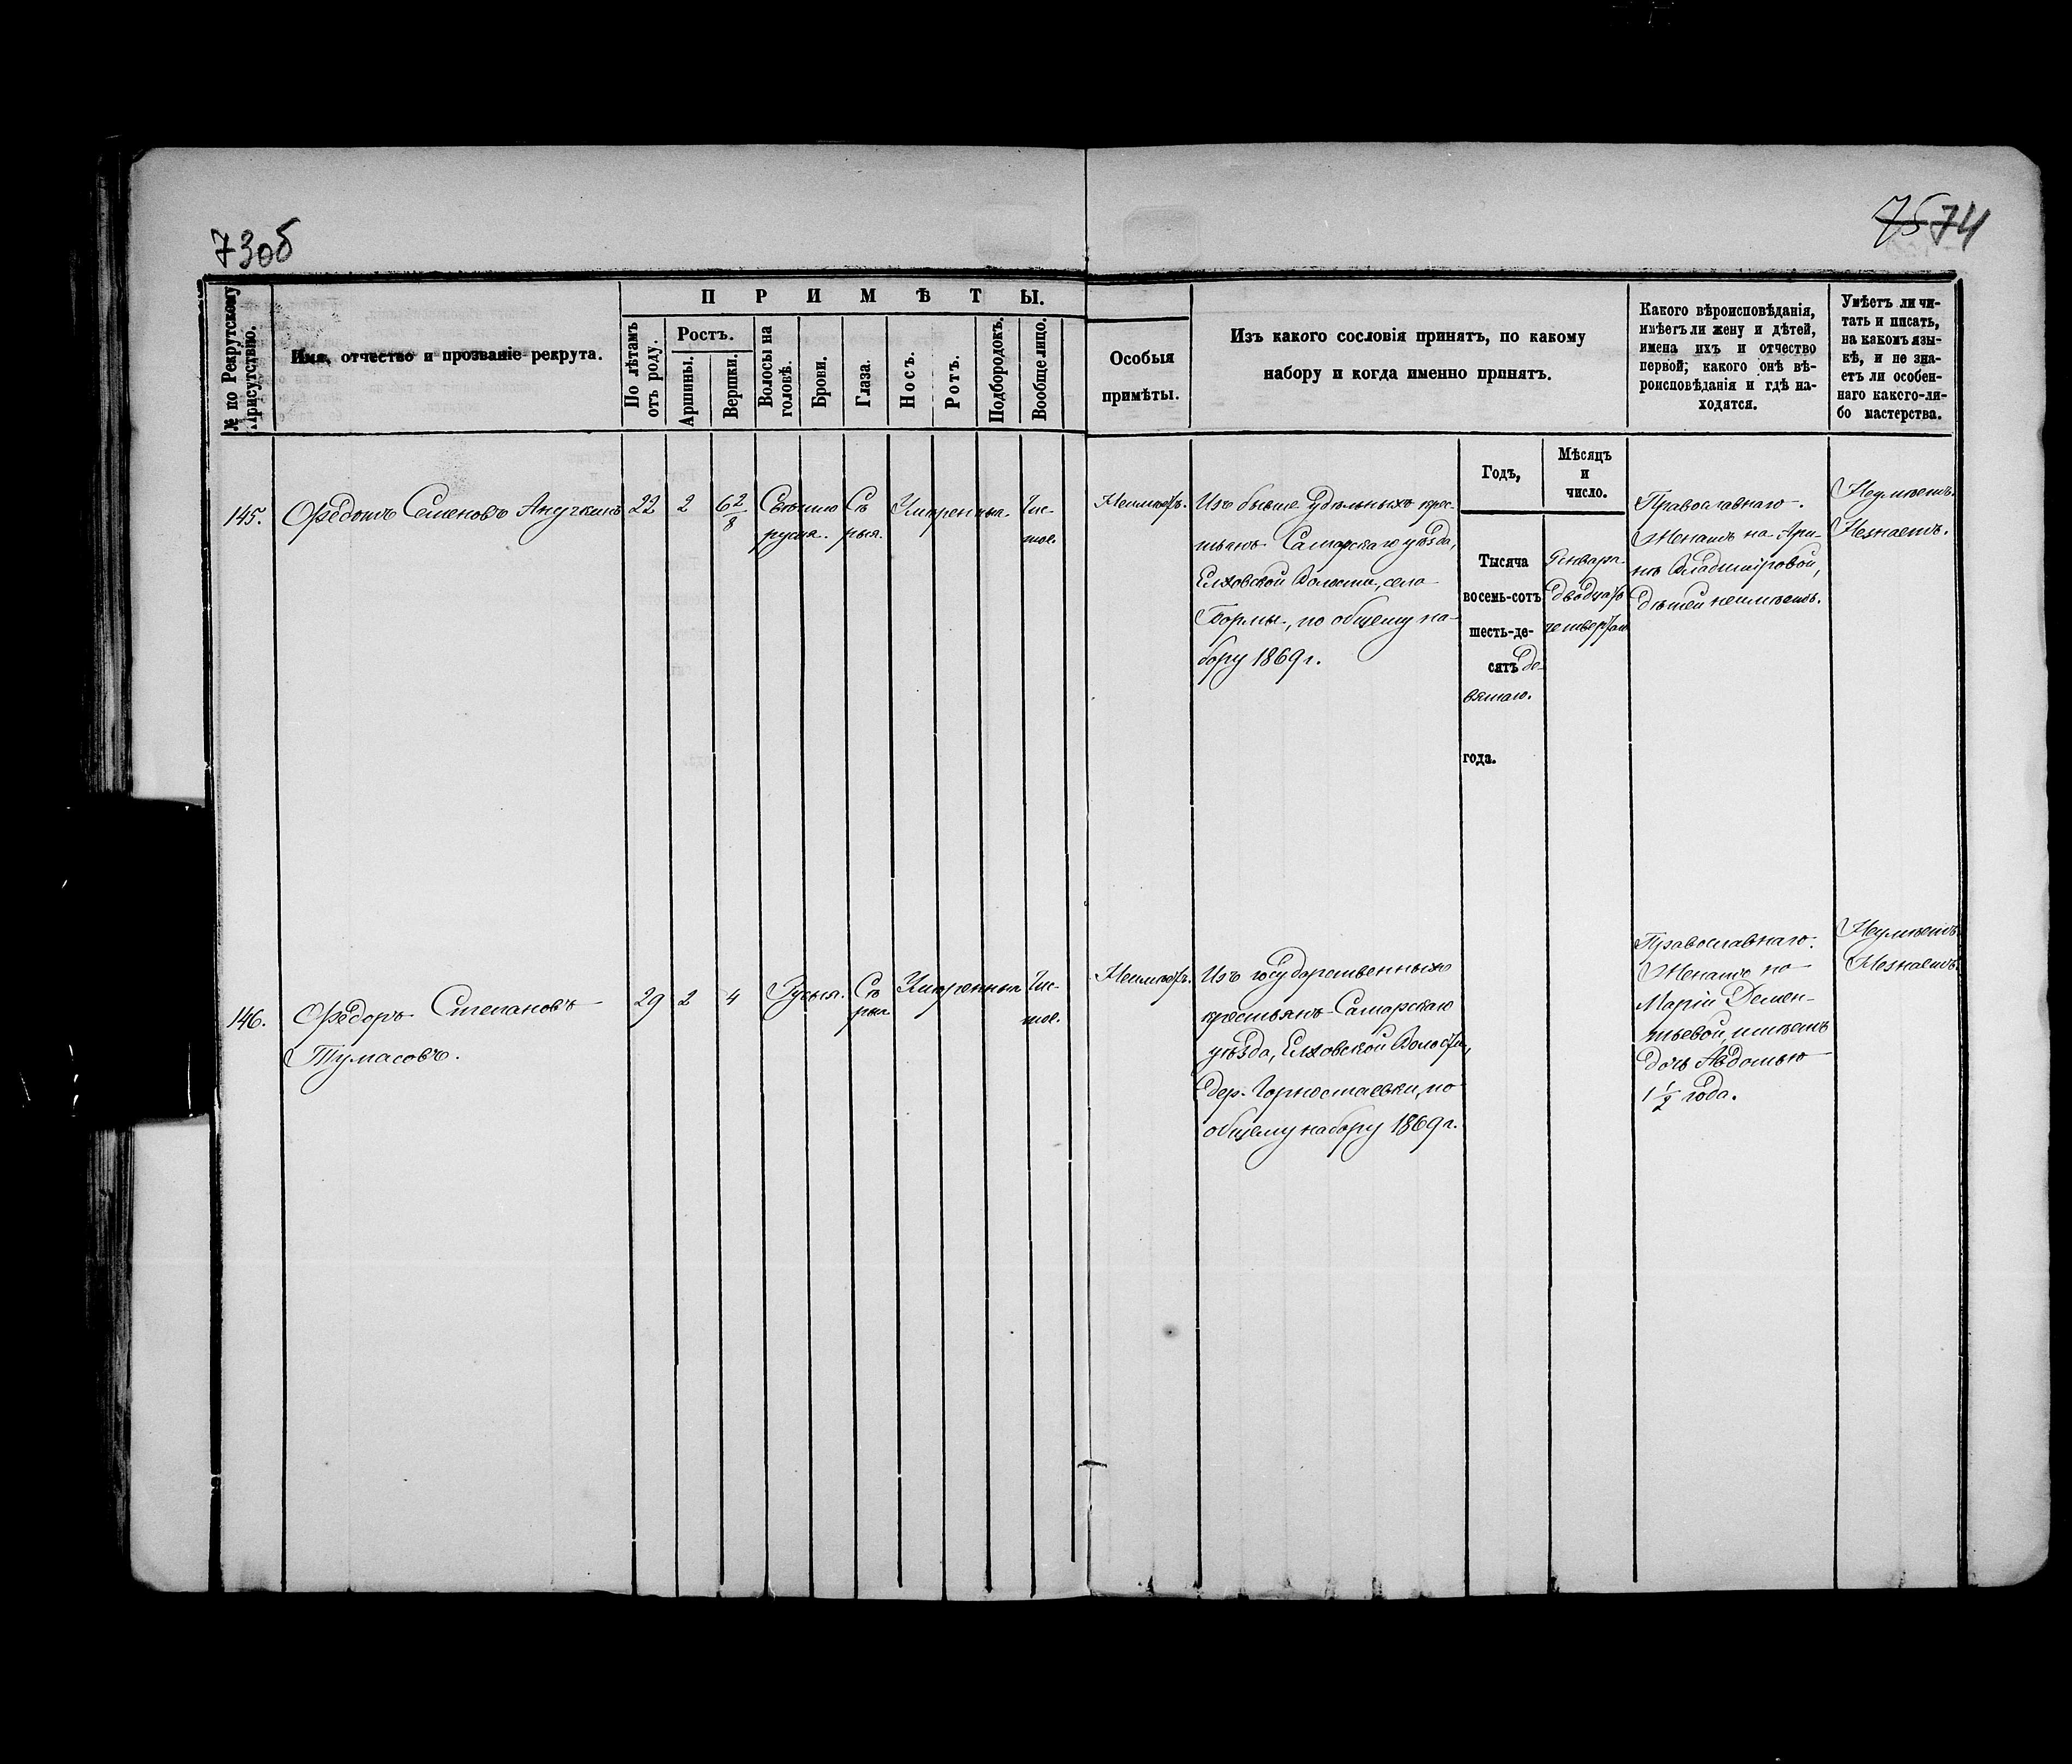 73об
75 74
№ по Рекрутскому
Присутствію.
Имя, отчество и прозваніе рекрута.
ПРИМѢТЫ.
По лѣтамъ
отъ роду.
Ростъ.
Аршины.
Вершки.
Волосы на
головѣ.
Брови.
Глаза.
Носъ.
Ротъ.
Подбородокъ.
Вообще лицо.
Особыя
примѣты.
Изъ какого сословія принятъ, по какому
набору и когда именно принятъ.
Какого вѣроисповѣданія,
имѣетъ ли жену и дѣтей,
имена ихъ и отчество
первой; какого онѣ вѣ-
роисповѣданія и гдѣ на-
ходятся.
Умѣетъ ли чи-
тать и писать,
на какомъ язы-
кѣ, и не зна-
етъ ли особен-
наго какого-ли-
бо мастерства.
Годъ,
Мѣсяцъ
и
число.
145.
Ѳедотъ Семеновъ Анучкинъ
22
2
6 2/8
Свѣтло
русыя.
Сѣ
рыя.
Умѣренныя.
Чис-
тое.
Неимѣетъ.
Изъ бывше Удѣльныхъ крес-
тьянъ Самарскаго уѣзда,
Елховской Волости, села
Бормы, по общему на-
бору 1869 г.
Тысяча
восемь-сотъ
шесть-де-
сятъ де-
вятаго.
года.
Января
двадцать
четвертаго
Православнаго.
Женатъ на Ари-
нѣ Владиміровой,
дѣтей неимѣетъ.
Неумѣетъ.
Незнаетъ.
146.
Ѳедоръ Степановъ
Тумасовъ.
29
2
4
Русыя.
Сѣ
рыя
Умѣренныя
Чис-
тое.
Неимѣетъ.
Изъ государственныхъ
крестьянъ Самарскаго
уѣзда, Елховской Волости,
дер. Горностаевки, по
общему набору 1869 г.
Православнаго.
Женатъ на
Маріи Демен-
тьевой, имѣетъ
дочь Авдотью
1 1/2 года.
Неумѣетъ.
Незнаетъ.